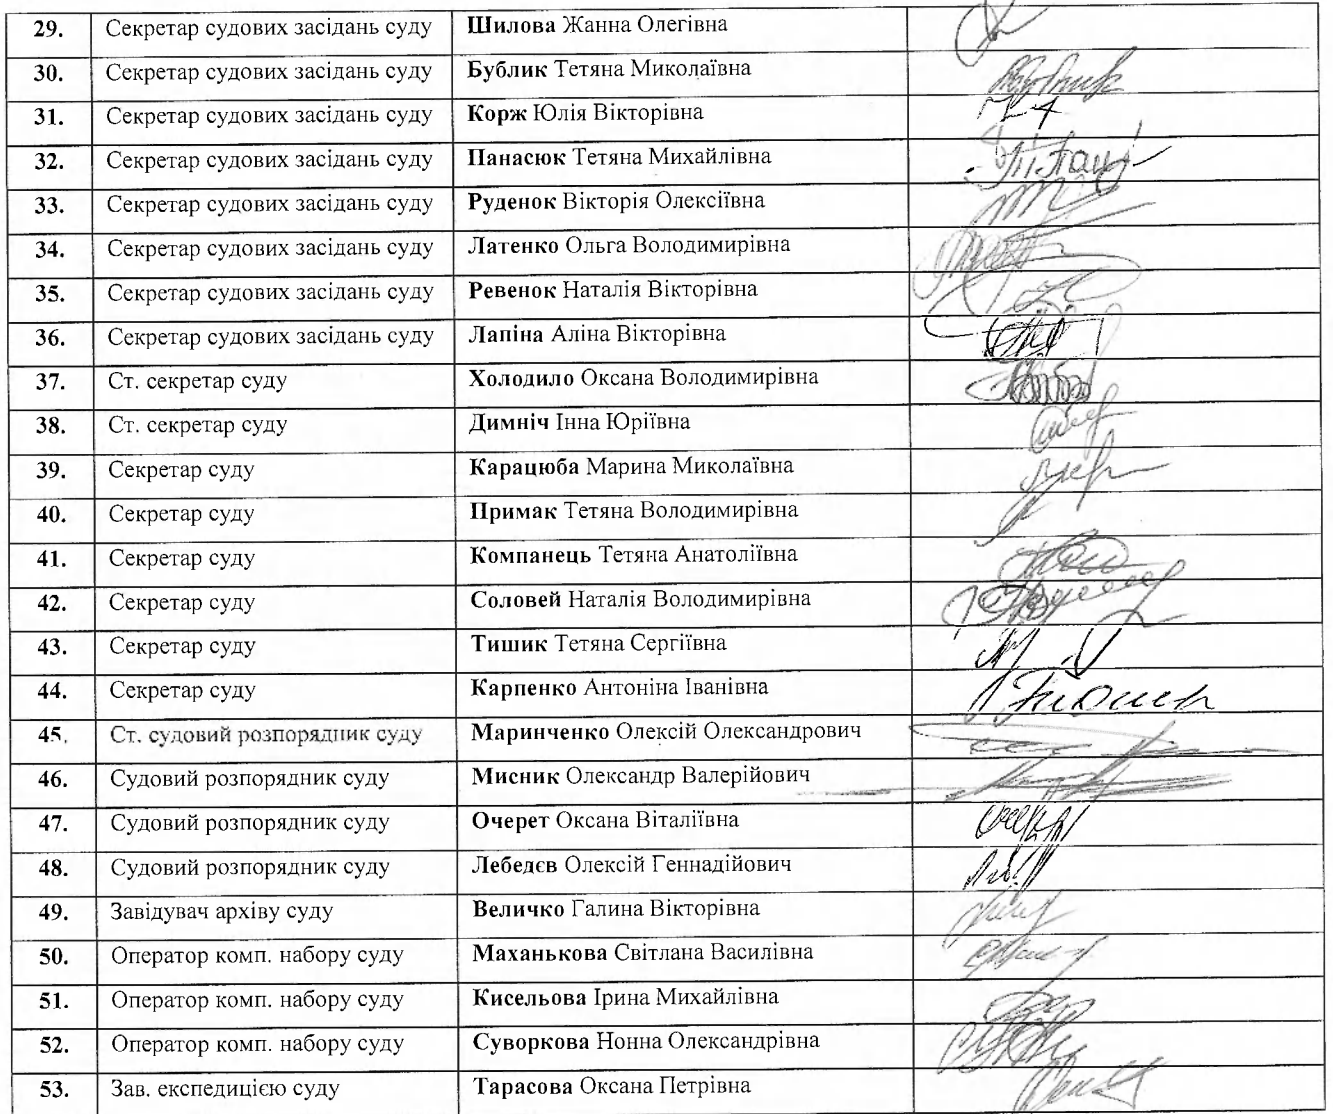 29. Секретар судових засідань суду Шилова Жанна Олегівна
30. Секретар судових засідань суду Бублик Тетяна Миколаївна
31. Секретар судових засідань суду Корж Юлія Вікторівна
32. Секретар судових засідань суду Панасюк Тетяна Михайлівна
33. Секретар судових засідань суду Руденок Вікторія Олексіївна
34. Секретар судових засідань суду Латенко Ольга Володимирівна
35. Секретар судових засідань суду Ревенок Наталія Вікторівна
36. Секретар судових засідань суду Лапіна Аліна Вікторівна
37. Ст. секретар суду Холодило Оксана Володимирівна
38. Ст. секретар суду Димніч Інна Юріївна
39. Секретар суду Карацюба Марина Миколаївна
40. Секретар суду Примак Тетяна Володимирівна
41. Секретар суду Компанець Тетяна Анатоліївна
42. Секретар суду Соловей Наталія Володимирівна
43. Секретар суду Тишик Тетяна Сергіївна
44. Секретар суду Карпенко Антоніна Іванівна
45. Ст. судовий розпорядник суду Маринченко Олексій Олександрович
46. Судовий розпорядник суду Мисник Олександр Валерійович
47. Судовий розпорядник суду Очерет Оксана Віталіївна
48. Судовий розпорядник суду Лебедєв Олексій Геннадійович
49. Завідувач архіву суду Величко Галина Вікторівна
50. Оператор комп. набору суду Маханькова Світлана Василівна
51. Оператор комп. набору суду Кисельова Ірина Михайлівна
52. Оператор комп. набору суду Суворкова Нонна Олександрівна
53. Зав. експедицією суду Тарасова Оксана Петрівна